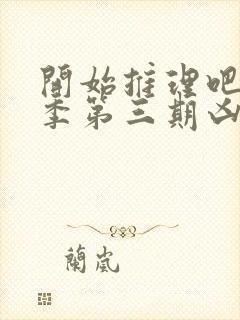 開始推理吧
季第三期凶
蘭嵐